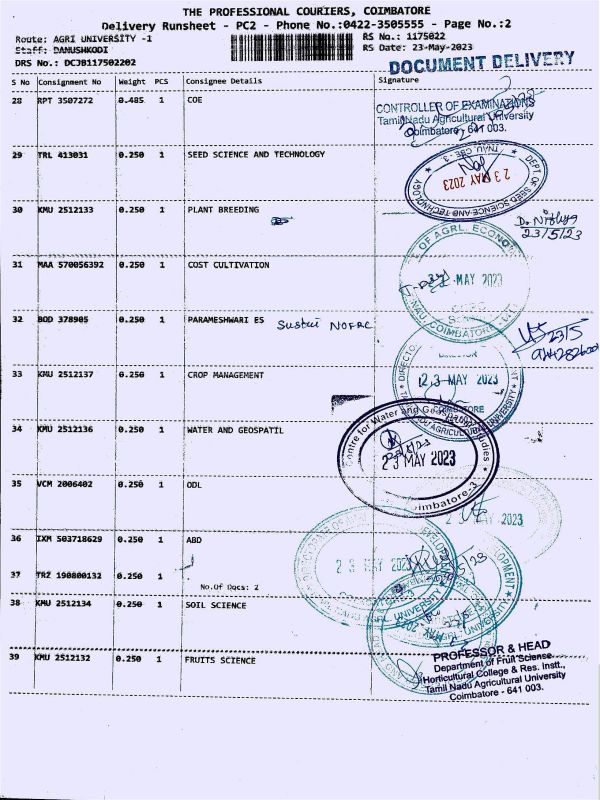 THE PROFESSIONAL COURIERS, COIMBATORE
Delivery Runsheet - PC2 - Phone No.:0422-3505555 - Page No.:2
Route: AGRI UNIVERSITY -1
RS No.: 1175022
Staff: DANUSHKODI
RS Date: 23-May-2023
DRS No.: DCJB117502202
DOCUMENT DELIVERY
S No Consignment No Weight PCS Consignee Details Signature
28 RPT 3507272 0.485 1 COE
CONTROLLER OF EXAMINATIONS
Tamil Nadu Agricultural University
Coimbatore - 641 003.
29 TRL 413031 0.250 1 SEED SCIENCE AND TECHNOLOGY
DEPT. OF SEED SCIENCE AND TECHNOLOGY
TNAU, CBE - 3
23 MAY 2023
30 KMU 2512133 0.250 1 PLANT BREEDING
D. Nithya
23/5/23
OF AGRL. ECONO
31 MAA 570056392 0.250 1 COST CULTIVATION
MAY 2023
COIMBATORE
32 BOD 378905 0.250 1 PARAMESHWARI ES
NOFRC
23/5
33 KMU 2512137 0.250 1 CROP MANAGEMENT
23 MAY 2023
COIMBATORE
34 KMU 2512136 0.250 1 WATER AND GEOSPATIL
Centre for Water and Geospatial Studies
23 MAY 2023
Coimbatore-3
35 VCM 2006402 0.250 1 ODL
2 MAY 2023
36 IXM 503718629 0.250 1 ABD
23 MAY 2023
37 TRZ 190800132 0.250 1
No.Of Docs: 2
38 KMU 2512134 0.250 1 SOIL SCIENCE
39 KMU 2512132 0.250 1 FRUITS SCIENCE
PROFESSOR & HEAD
Department of Fruit Science
Horticultural College & Res. Instt.,
Tamil Nadu Agricultural University
Coimbatore - 641 003.